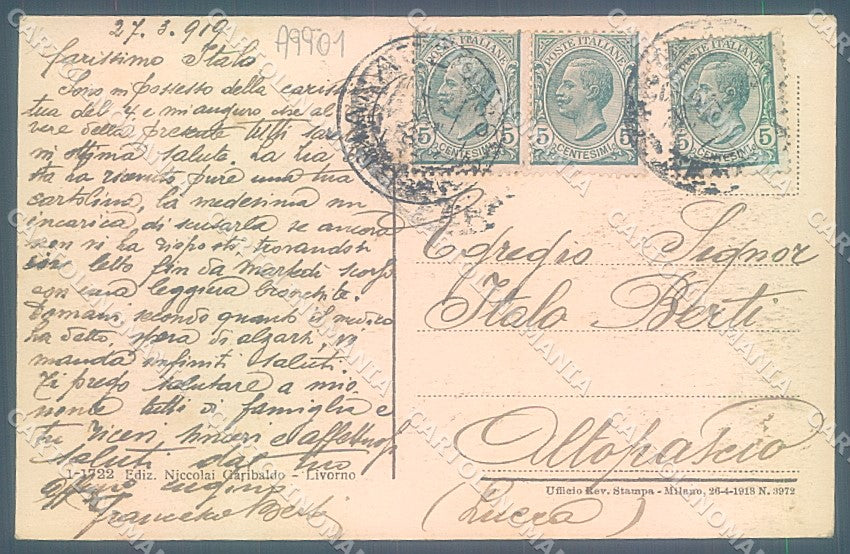 27.3.919
A9901
Carissimo Italo
Sono in possesso della carissi
tua del 4. e mi auguro che al
vere della presente tutti sare
in ottima salute. La zia
sta ha ricevuto pure una tua
cartolina, la medesima mi
incarica, di scusarla se ancora
non vi ha risposto, trovandosi
letto fin da martedì scorso
con una leggiera bronchite.
Domani, secondo quanto il medico
ha detto, spera di alzarsi, vi
manda infiniti saluti.
Ti prego salutare a mio
nome tutti di famiglia e
tu ricevi sinceri e affettuosi
saluti dal tuo
aff.mo cugino
Francesco Berti
1-1722 Ediz. Niccolai Garibaldo - Livorno
POSTE ITALIANE
5 5
CENTESIMI
POSTE ITALIANE
5 5
CENTESIMI
POSTE ITALIANE
5
CENTESIMI
Egregio Signor
Italo Berti
Altopascio
Ufficio Rev. Stampa - Milano, 26-4-1918 N. 3972
(Lucca)
CARTOLINOMANIA